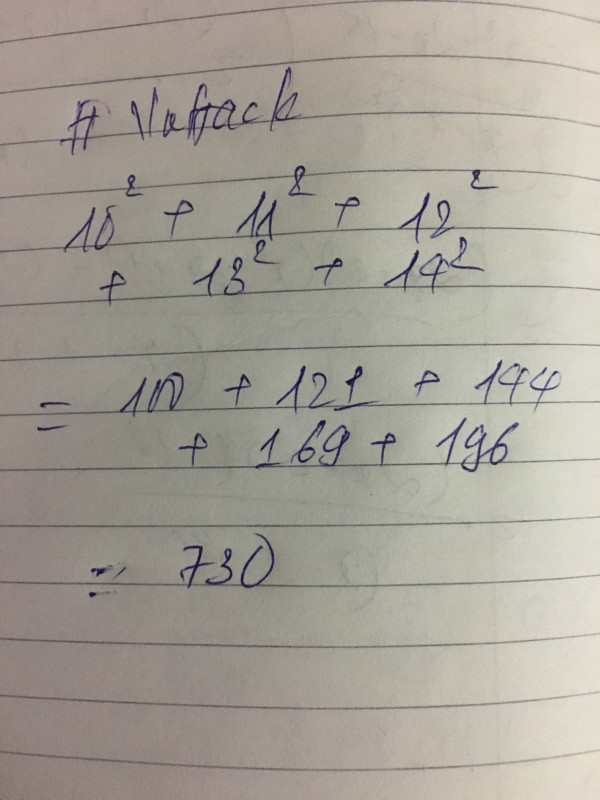 #
10² + 11² + 12²
+ 13² + 14²
= 100 + 121 + 144
+ 169 + 196
= 730